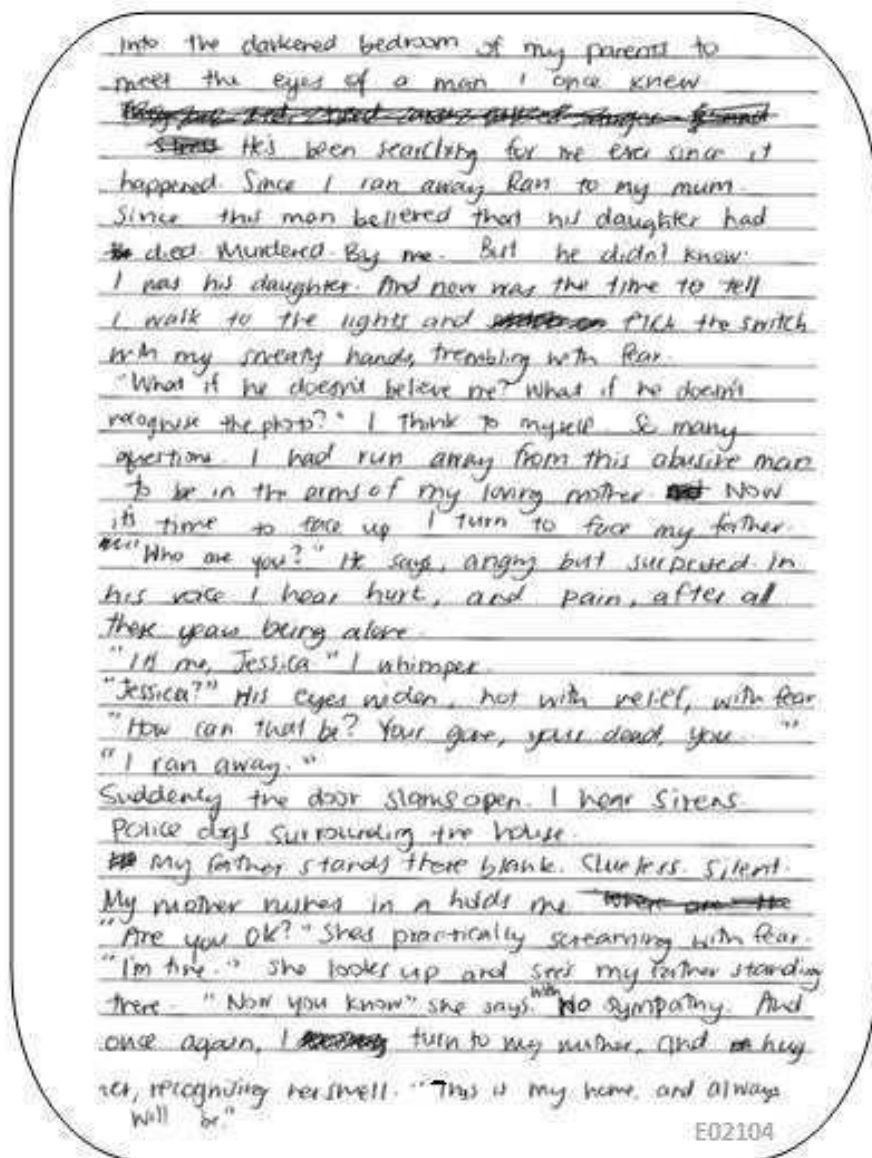 into the darkened bedroom of my parents to
meet the eyes of a man I once knew
He's been searching for me ever since it
happened. Since I ran away Ran to my mum.
Since this man believed that his daughter had
died. Murdered. By me. But he didn't know.
I was his daughter. And now was the time to tell
I walk to the lights and flick the switch
with my sweaty hands, trembling with fear.
"What if he doesn't believe me? What if he doesn't
recognise the photo?" I think to myself. So many
questions. I had run away from this abusive man
to be in the arms of my loving mother. Now
it's time to face up I turn to face my father.
"Who are you?" He says, angry but surprised. In
his voice I hear hurt, and pain, after all
these years being alone.
"It's me, Jessica" I whimper.
"Jessica?" His eyes widen, not with relief, with fear
"How can that be? Your gone, your dead, you.. "
"I ran away."
Suddenly the door slams open. I hear sirens.
Police dogs surrounding the house.
My father stands there blank. Clueless. Silent.
My mother rushes in n holds me
"Are you OK?" She's practically screaming with fear.
"I'm fine." She looks up and sees my father standing
there. "Now you know" she says. with No sympathy. And
once again, I turn to my mother, and hug
her, recognising her smell. "This is my home, and always
will be."
E02104